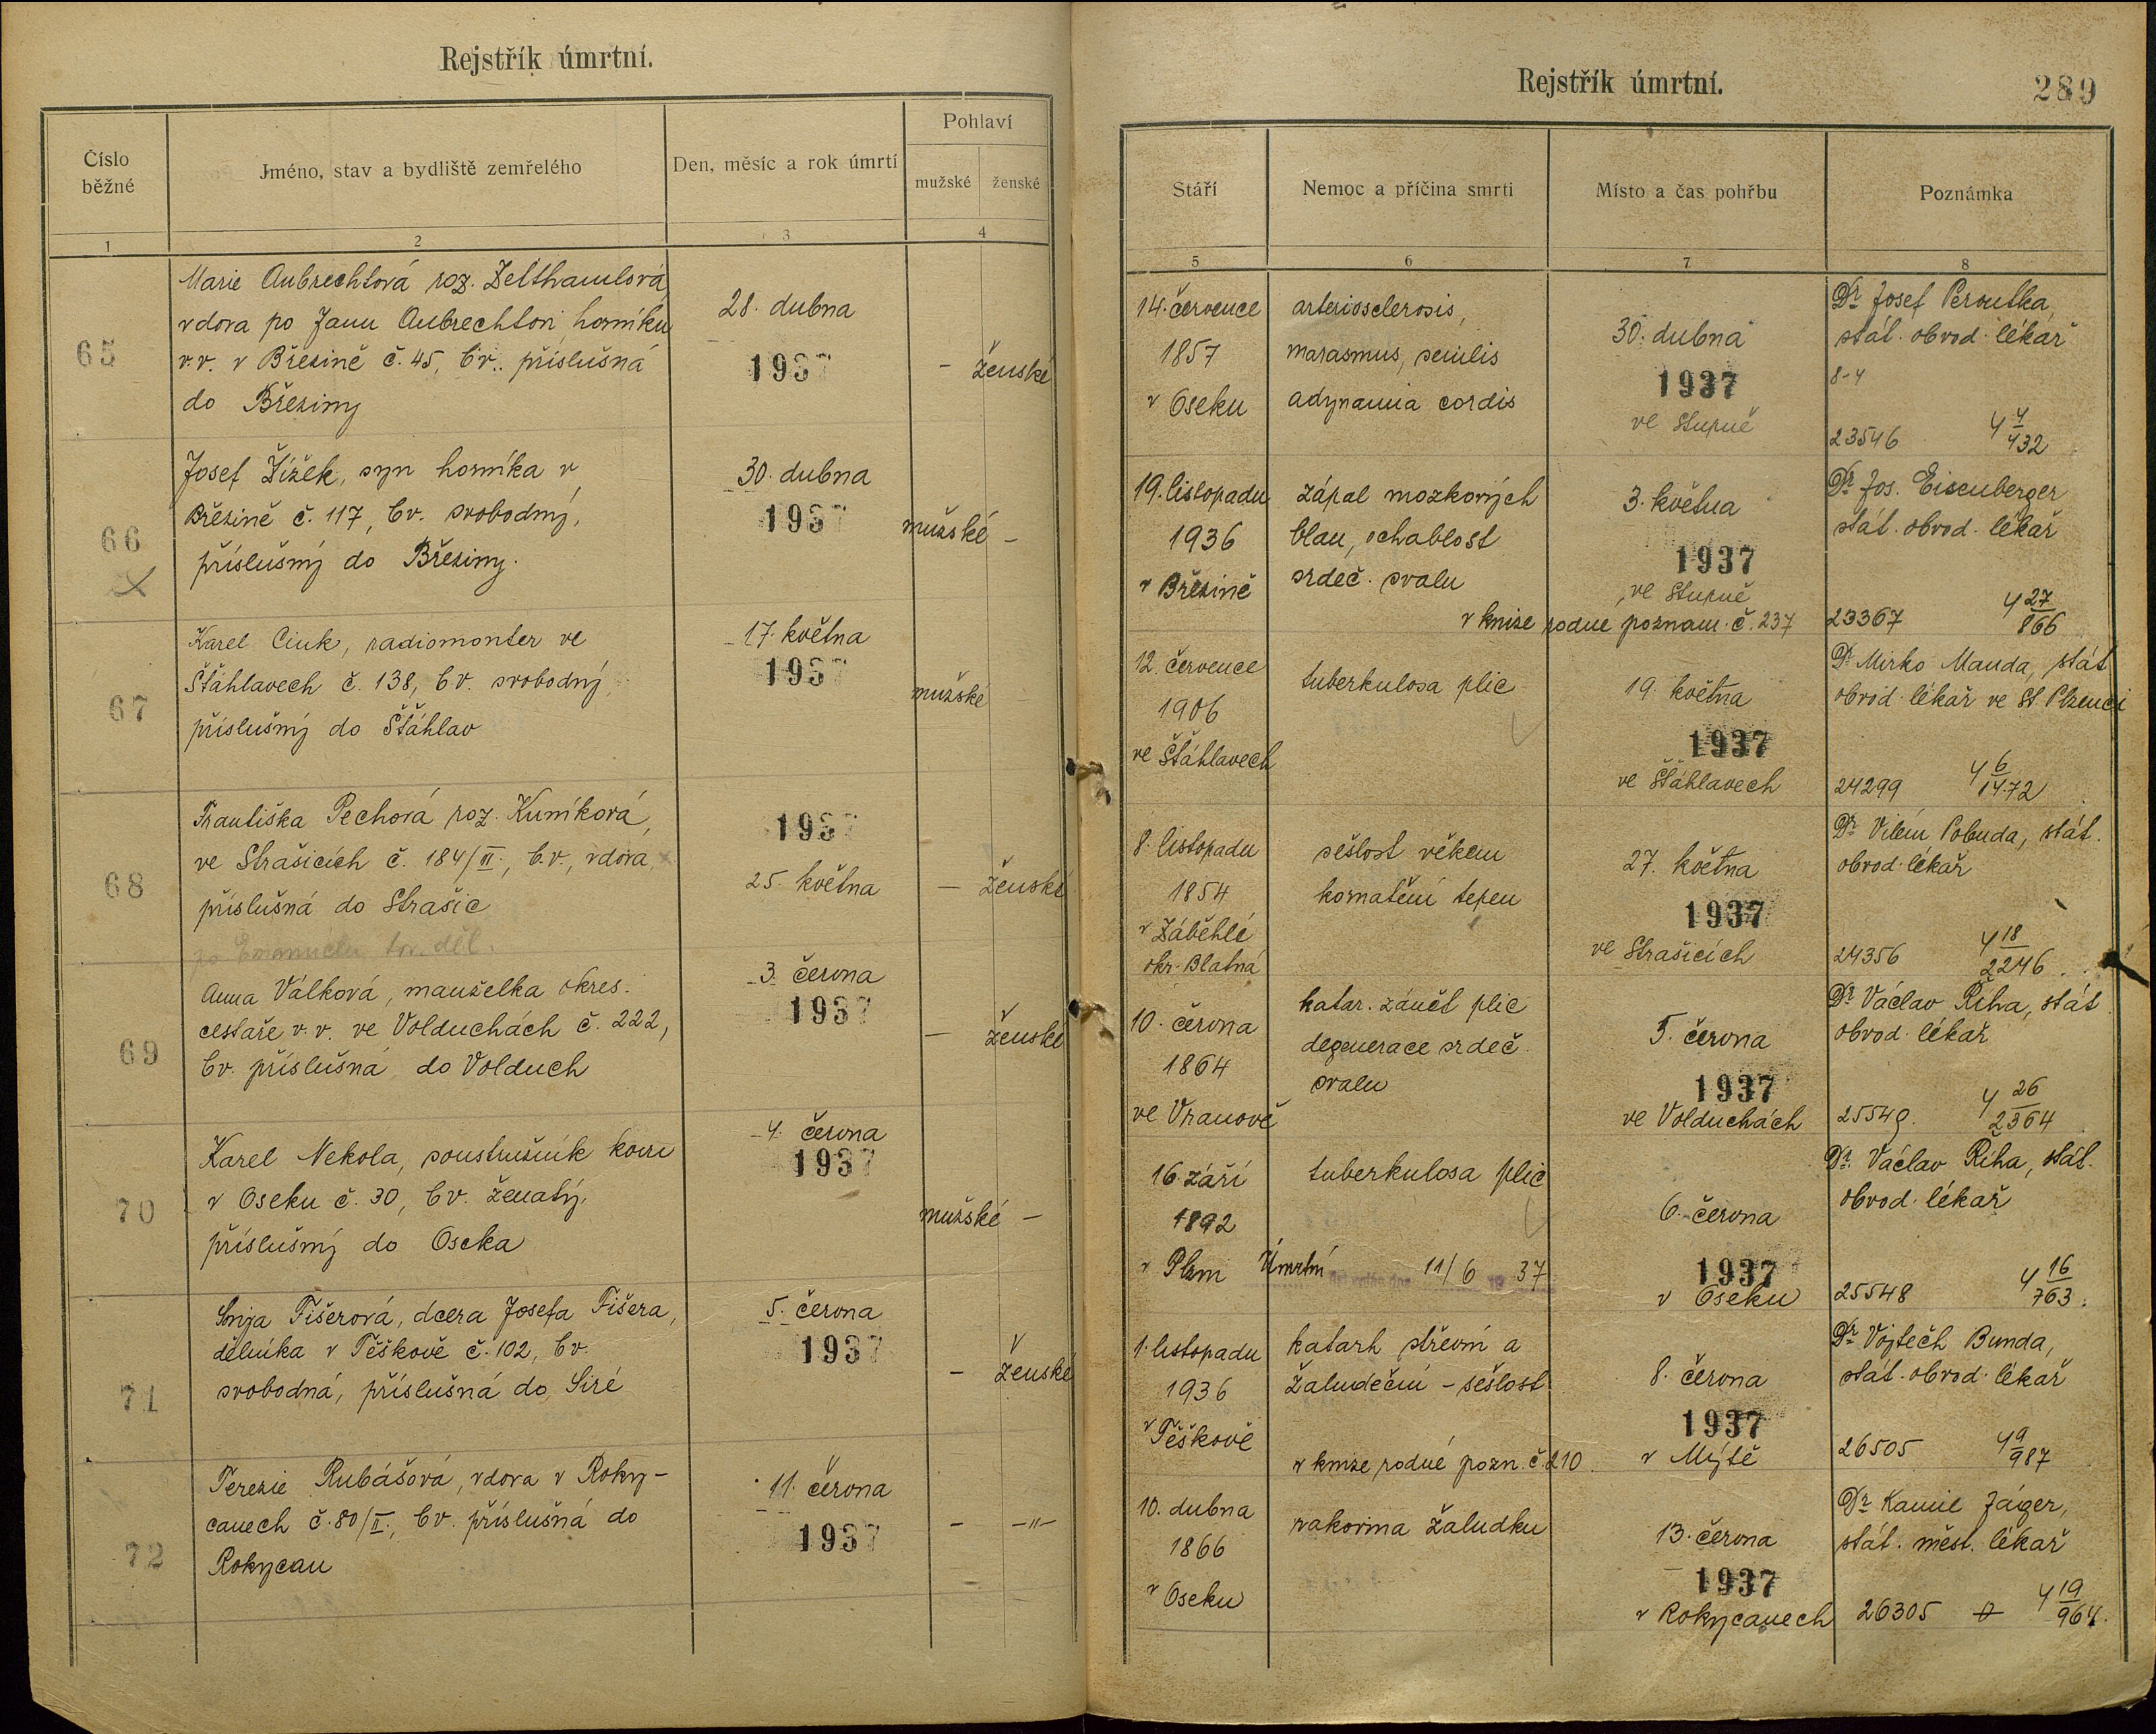 Rejstřík úmrtní.
Číslo běžné
Jméno, stav a bydliště zemřelého
Den, měsíc a rok úmrtí
Pohlaví
mužské
ženské
1
2
3
4
65
Marie Aubrechtová roz. Zelthamlová,
vdova po Janu Aubrechtovi horníku
v.v. v Březině č. 45, čv. příslušná
do Březiny
28. dubna
1937
– ženské
66
Josef Žížek, syn horníka v
Březině č. 117, čv. svobodný,
příslušný do Březiny.
30. dubna
1937
mužské –
67
Karel Cink, radiomonter ve
Šťáhlavech č. 138, čv. svobodný
příslušný do Šťáhlav
17. května
1937
mužské
68
Františka Pechová roz. Kuníková,
ve Strašicích č. 184/II., čv., vdova,
příslušná do Strašic
po Emanuelu tov. děl.
1937
25. května
– ženské
69
Anna Válková, manželka okres.
cestaře v.v. ve Volduchách č. 222,
čv. příslušná do Volduch
3. června
1937
– ženské
70
Karel Nekola, soustružník kovu
v Oseku č. 30, čv. ženatý,
příslušný do Oseka
4. června
1937
mužské –
71
Sonja Fišerová, dcera Josefa Fišera,
dělníka v Těškově č. 102, čv.
svobodná, příslušná do Siré
5. června
1937
– ženské
72
Terezie Rubášová, vdova v Roky-
canech č. 80/II., čv. příslušná do
Rokycan
11. června
1937
– –"–
Rejstřík úmrtní.
289
Stáří
Nemoc a příčina smrti
Místo a čas pohřbu
Poznámka
5
6
7
8
14. července
1857
v Oseku
arteriosclerosis,
marasmus, senilis
adynamia cordis
30. dubna
1937
ve Stupně
Dr Josef Peroutka,
stát. obvod. lékař
8-4
23546 4 4/432
19. listopadu
1936
v Březině
zápal mozkových
blan, ochablost
srdeč. svalu
v knize rodné poznam. č. 237
3. května
1937
ve Stupně
Dr Jos. Eisenberger
stát. obvod. lékař
23367 4 27/866
12. července
1906
ve Šťáhlavech
tuberkulosa plic
19. května
1937
ve Šťáhlavech
Dr Mirko Mauda, stát
obvod. lékař ve St. Plzenci
24299 4 6/1472
8. listopadu
1854
v Záběhlé
okr. Blatná
sešlost věkem
kornatění tepen
27. května
1937
ve Strašicích
Dr Vilém Pobuda, stát.
obvod. lékař
24356 4 18/2246
10. června
1864
ve Vranově
katar. zánět plic
degenerace srdeč.
svalu
5. června
1937
ve Volduchách
Dr Václav Říha, stát
obvod. lékař
25549. 4 26/2364
16. září
1892
v Plzni
tuberkulosa plic
Úmrtní 11/6 19 37
6. června
1937
v Oseku
Dr. Václav Říha, stát.
obvod. lékař
25548 4 16/763.
1. listopadu
1936
v Těškově
katarh střevní a
žaludeční – sešlost
v knize rodné pozn. č. 210.
8. června
1937
v Mýtě
Dr Vojtěch Bunda,
stát. obvod. lékař
26505 4 9/987
10. dubna
1866
v Oseku
rakovina žaludku
13. června
1937
v Rokycanech
Dr Kamil Jäger,
stát. měst. lékař
26305 4 19/964.